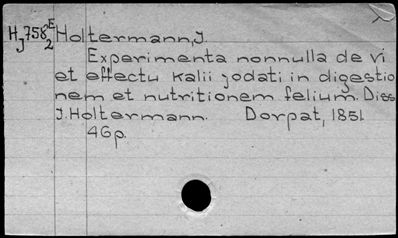 HJ 758 E/2 Holtermann, J.
Experimenta nonnulla de vi
et effectu kalii jodati in digestio
nem et nutritionem felium. Diss
J. Holtermann. Dorpat, 1851.
46p.